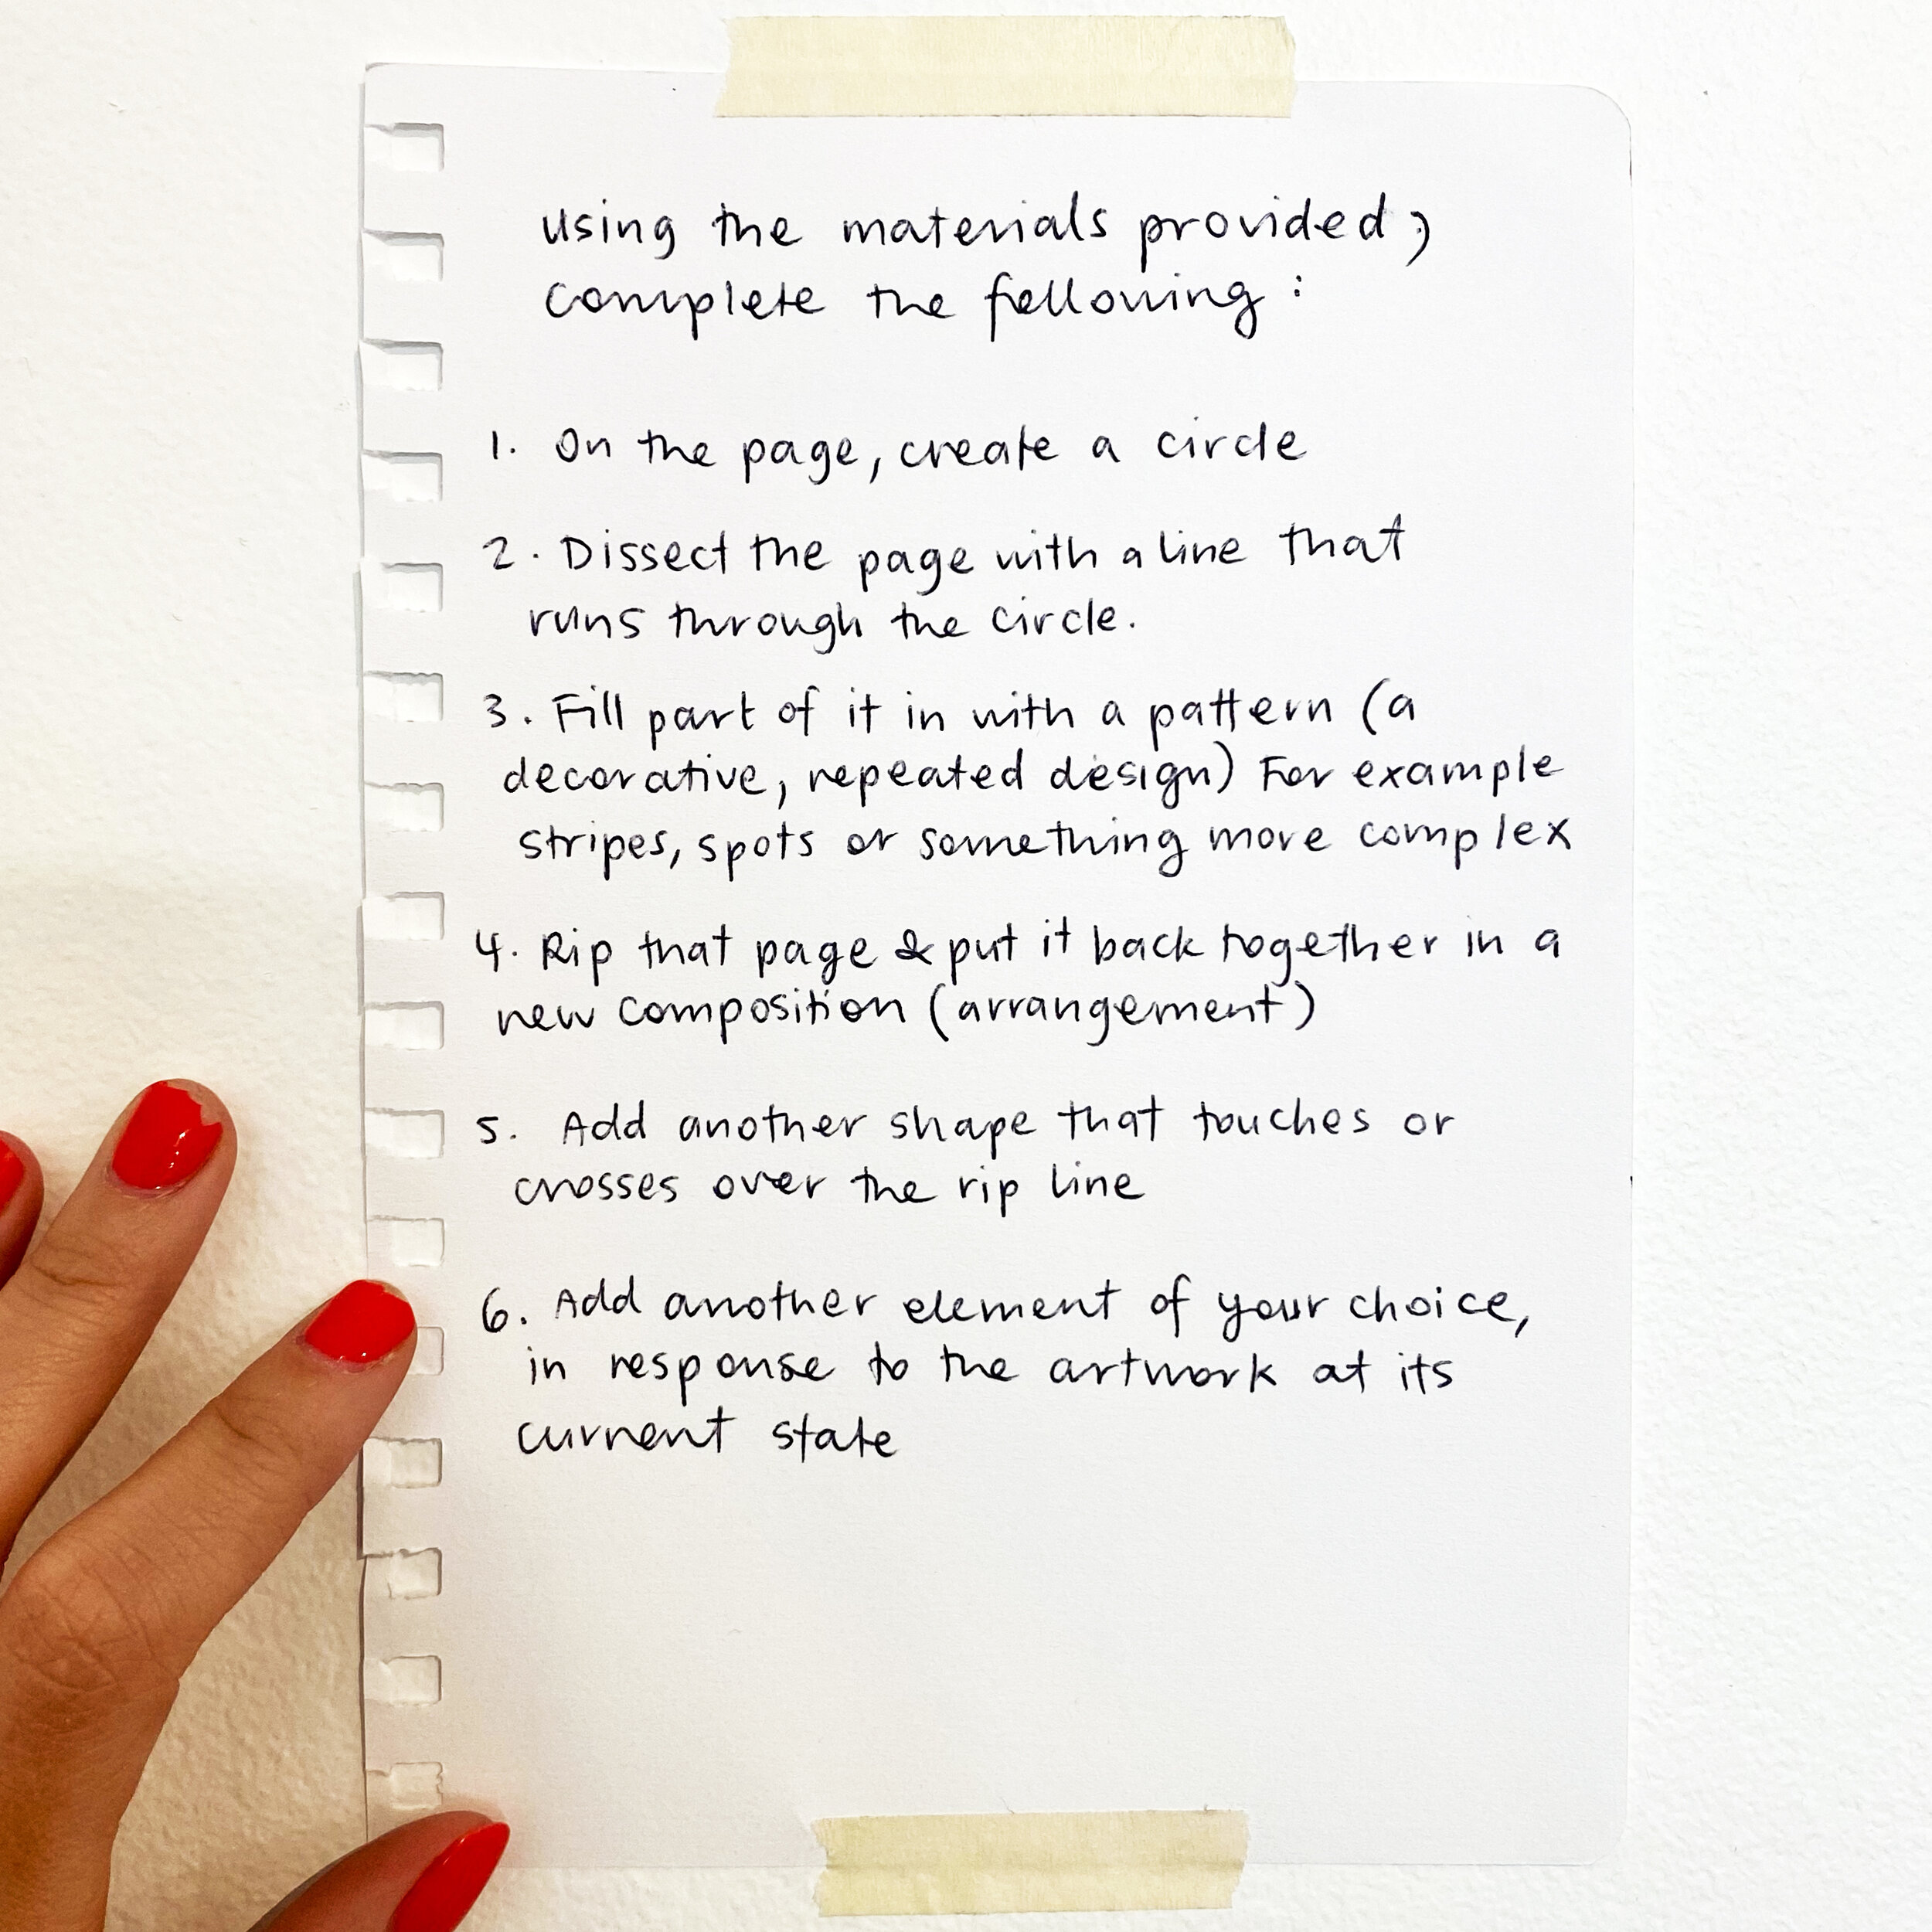 using the materials provided,
complete the following :
1. On the page, create a circle
2. Dissect the page with a line that
runs through the circle.
3. Fill part of it in with a pattern (a
decorative, repeated design) For example
stripes, spots or something more complex
4. Rip that page & put it back together in a
new composition (arrangement)
5. Add another shape that touches or
crosses over the rip line
6. Add another element of your choice,
in response to the artwork at its
current state